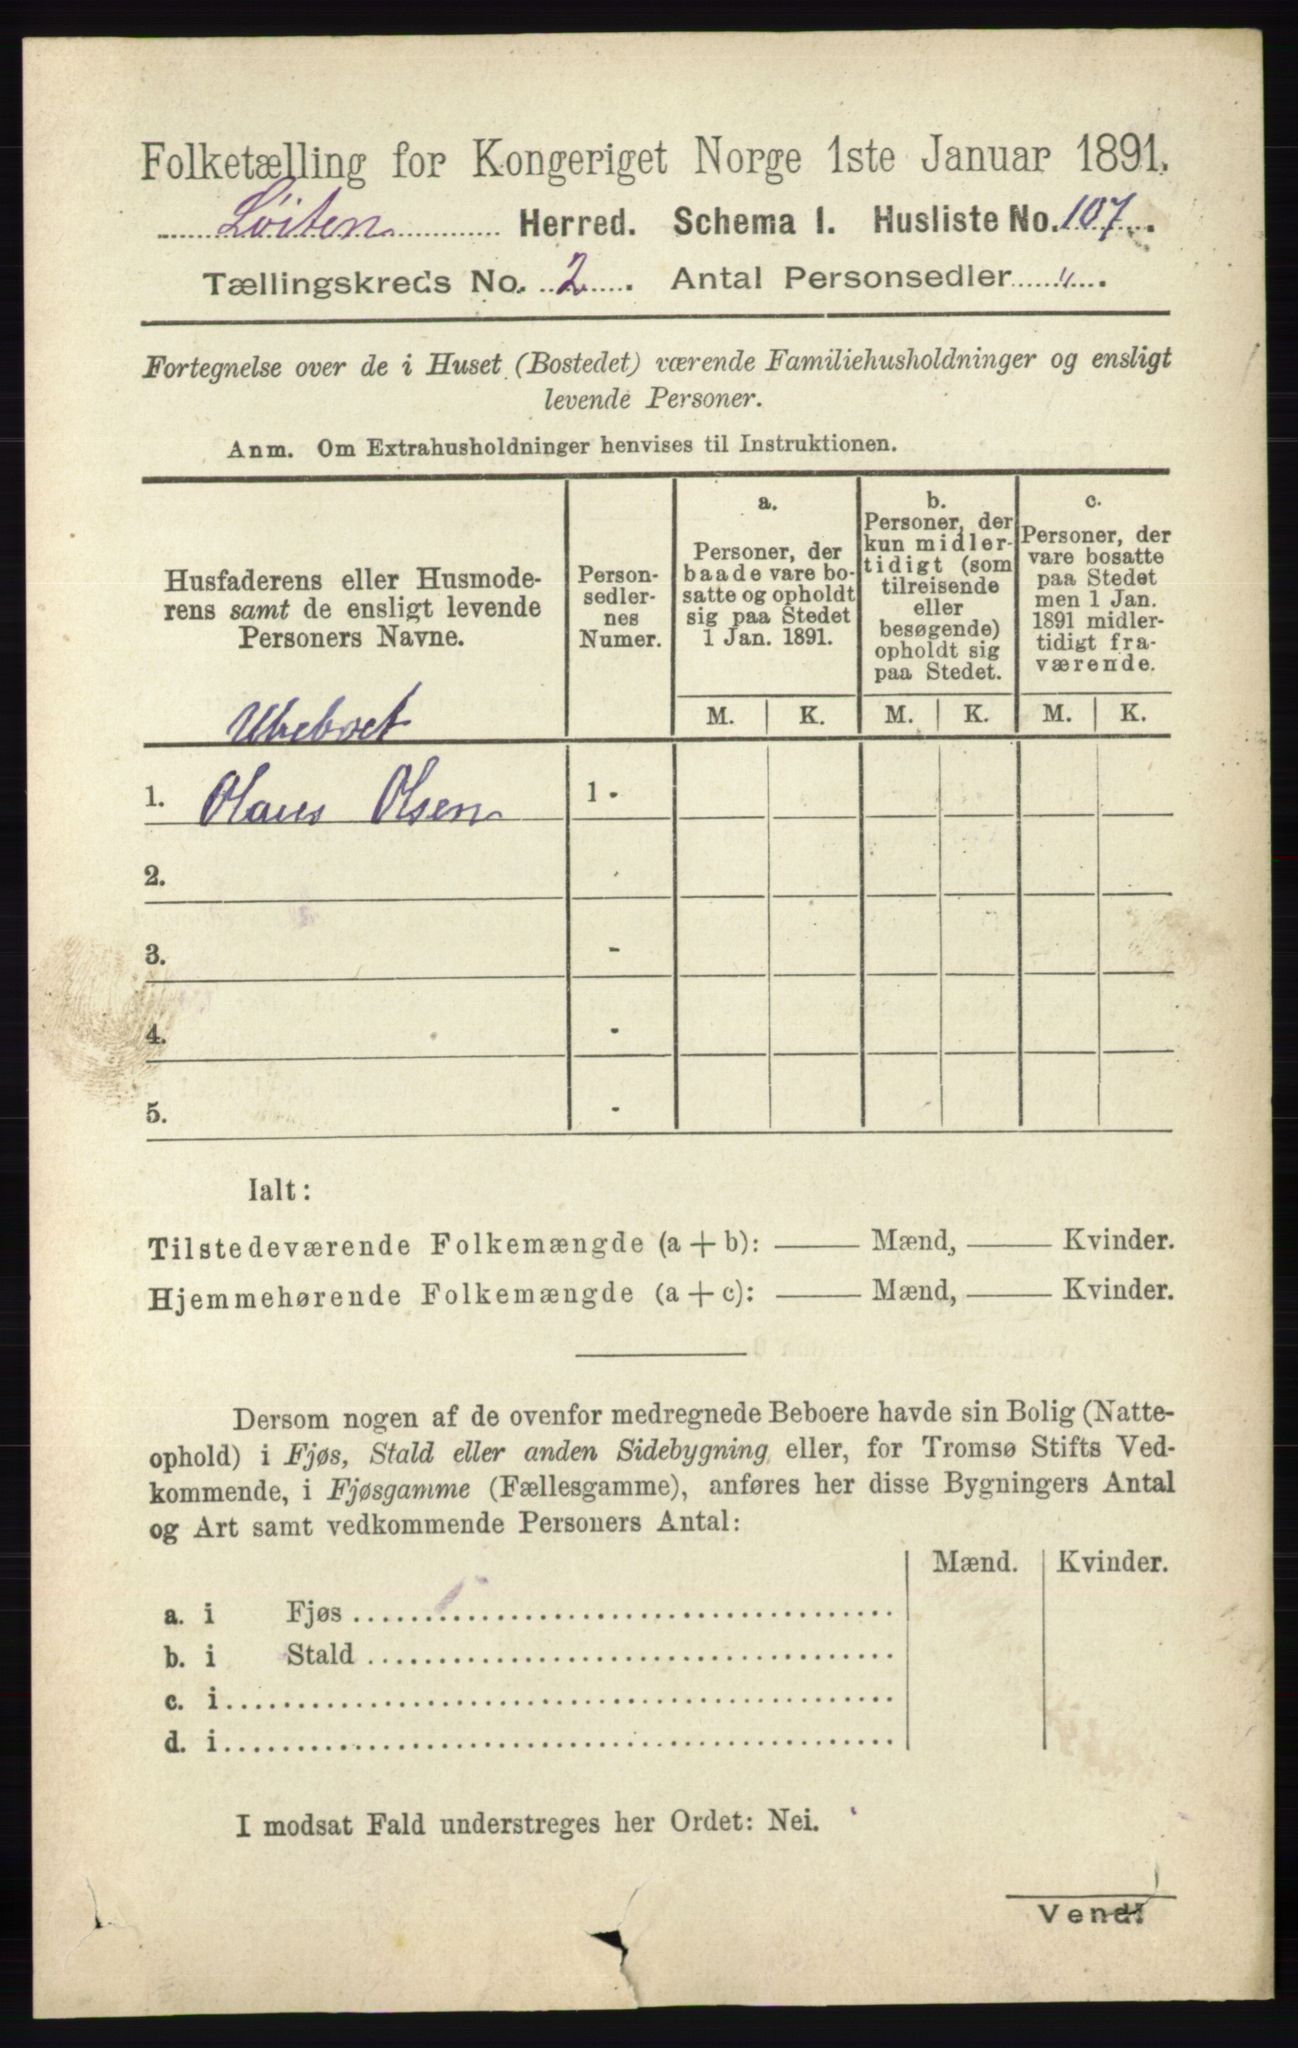 Folketælling for Kongeriget Norge 1ste Januar 1891.
Løiten Herred. Schema I. Husliste No. 107.
Tællingskreds No. 2. Antal Personsedler „.
Fortegnelse over de i Huset (Bostedet) værende Familiehusholdninger og ensligt
levende Personer.
Anm. Om Extrahusholdninger henvises til Instruktionen.
Husfaderens eller Husmode-
rens samt de ensligt levende
Personers Navne.
Ubeboet
Person-
sedler-
nes
Numer.
a.
Personer, der
baade vare bo-
satte og opholdt
sig paa Stedet
1 Jan. 1891.
b.
Personer, der
kun midler-
tidigt (som
tilreisende
eller
besøgende)
opholdt sig
paa Stedet.
c.
Personer, der
vare bosatte
paa Stedet
men 1 Jan.
1891 midler-
tidigt fra-
værende.
M. K. M. K. M. K.
1. Olaus Olsen 1 -
2.
3. -
4. -
5. -
Ialt:
Tilstedeværende Folkemængde (a + b): —— Mænd, —— Kvinder.
Hjemmehørende Folkemængde (a + c): —— Mænd, —— Kvinder.
Dersom nogen af de ovenfor medregnede Beboere havde sin Bolig (Natte-
ophold) i Fjøs, Stald eller anden Sidebygning eller, for Tromsø Stifts Ved-
kommende, i Fjøsgamme (Fællesgamme), anføres her disse Bygningers Antal
og Art samt vedkommende Personers Antal:
Mænd. Kvinder.
a. i Fjøs
b. i Stald
c. i
d. i
I modsat Fald understreges her Ordet: Nei.
Vend!